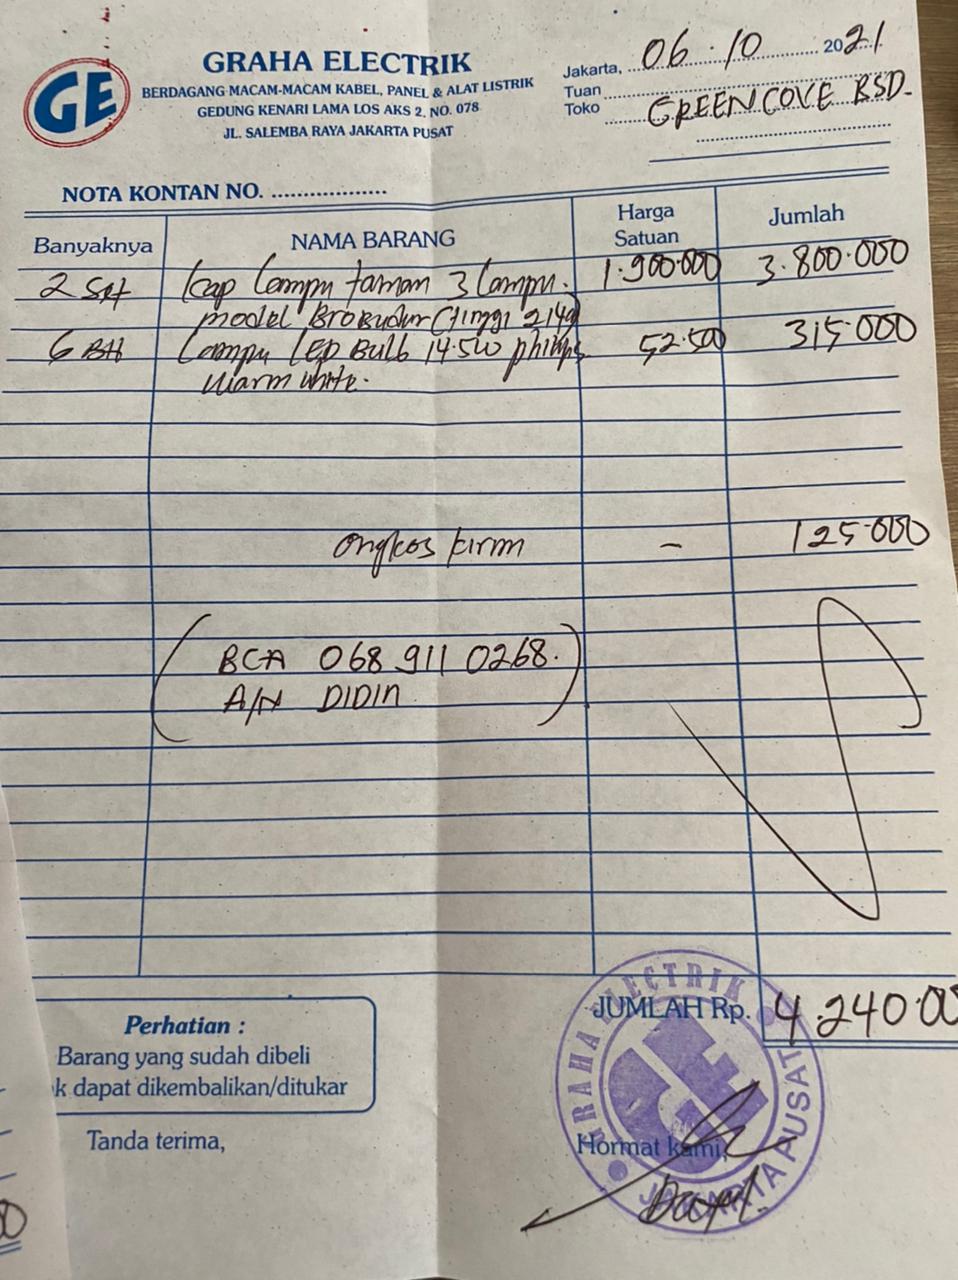 GE
GRAHA ELECTRIK
BERDAGANG MACAM-MACAM KABEL, PANEL & ALAT LISTRIK
GEDUNG KENARI LAMA LOS AKS 2, NO. 078
JL. SALEMBA RAYA JAKARTA PUSAT
Jakarta, 06·10 2021
Tuan
Toko GREENCOVE BSD.
NOTA KONTAN NO. ..................
Banyaknya NAMA BARANG Harga Satuan Jumlah
2 kap Lampu taman 3 Lampu. 1.900.000 3.800.000
model BroBudur (Tinggi
6 BH Lampu LED Bulb philips 52.500 315.000
warm white.
ongkos kirm - 125.000
(BCA 068 911 0268.
A/N DIDIN)
JUMLAH Rp. 4.240.00
Perhatian :
Barang yang sudah dibeli
k dapat dikembalikan/ditukar
Tanda terima,
Hormat kami,
GRAHA ELECTRIK
GE
JAKARTA PUSAT